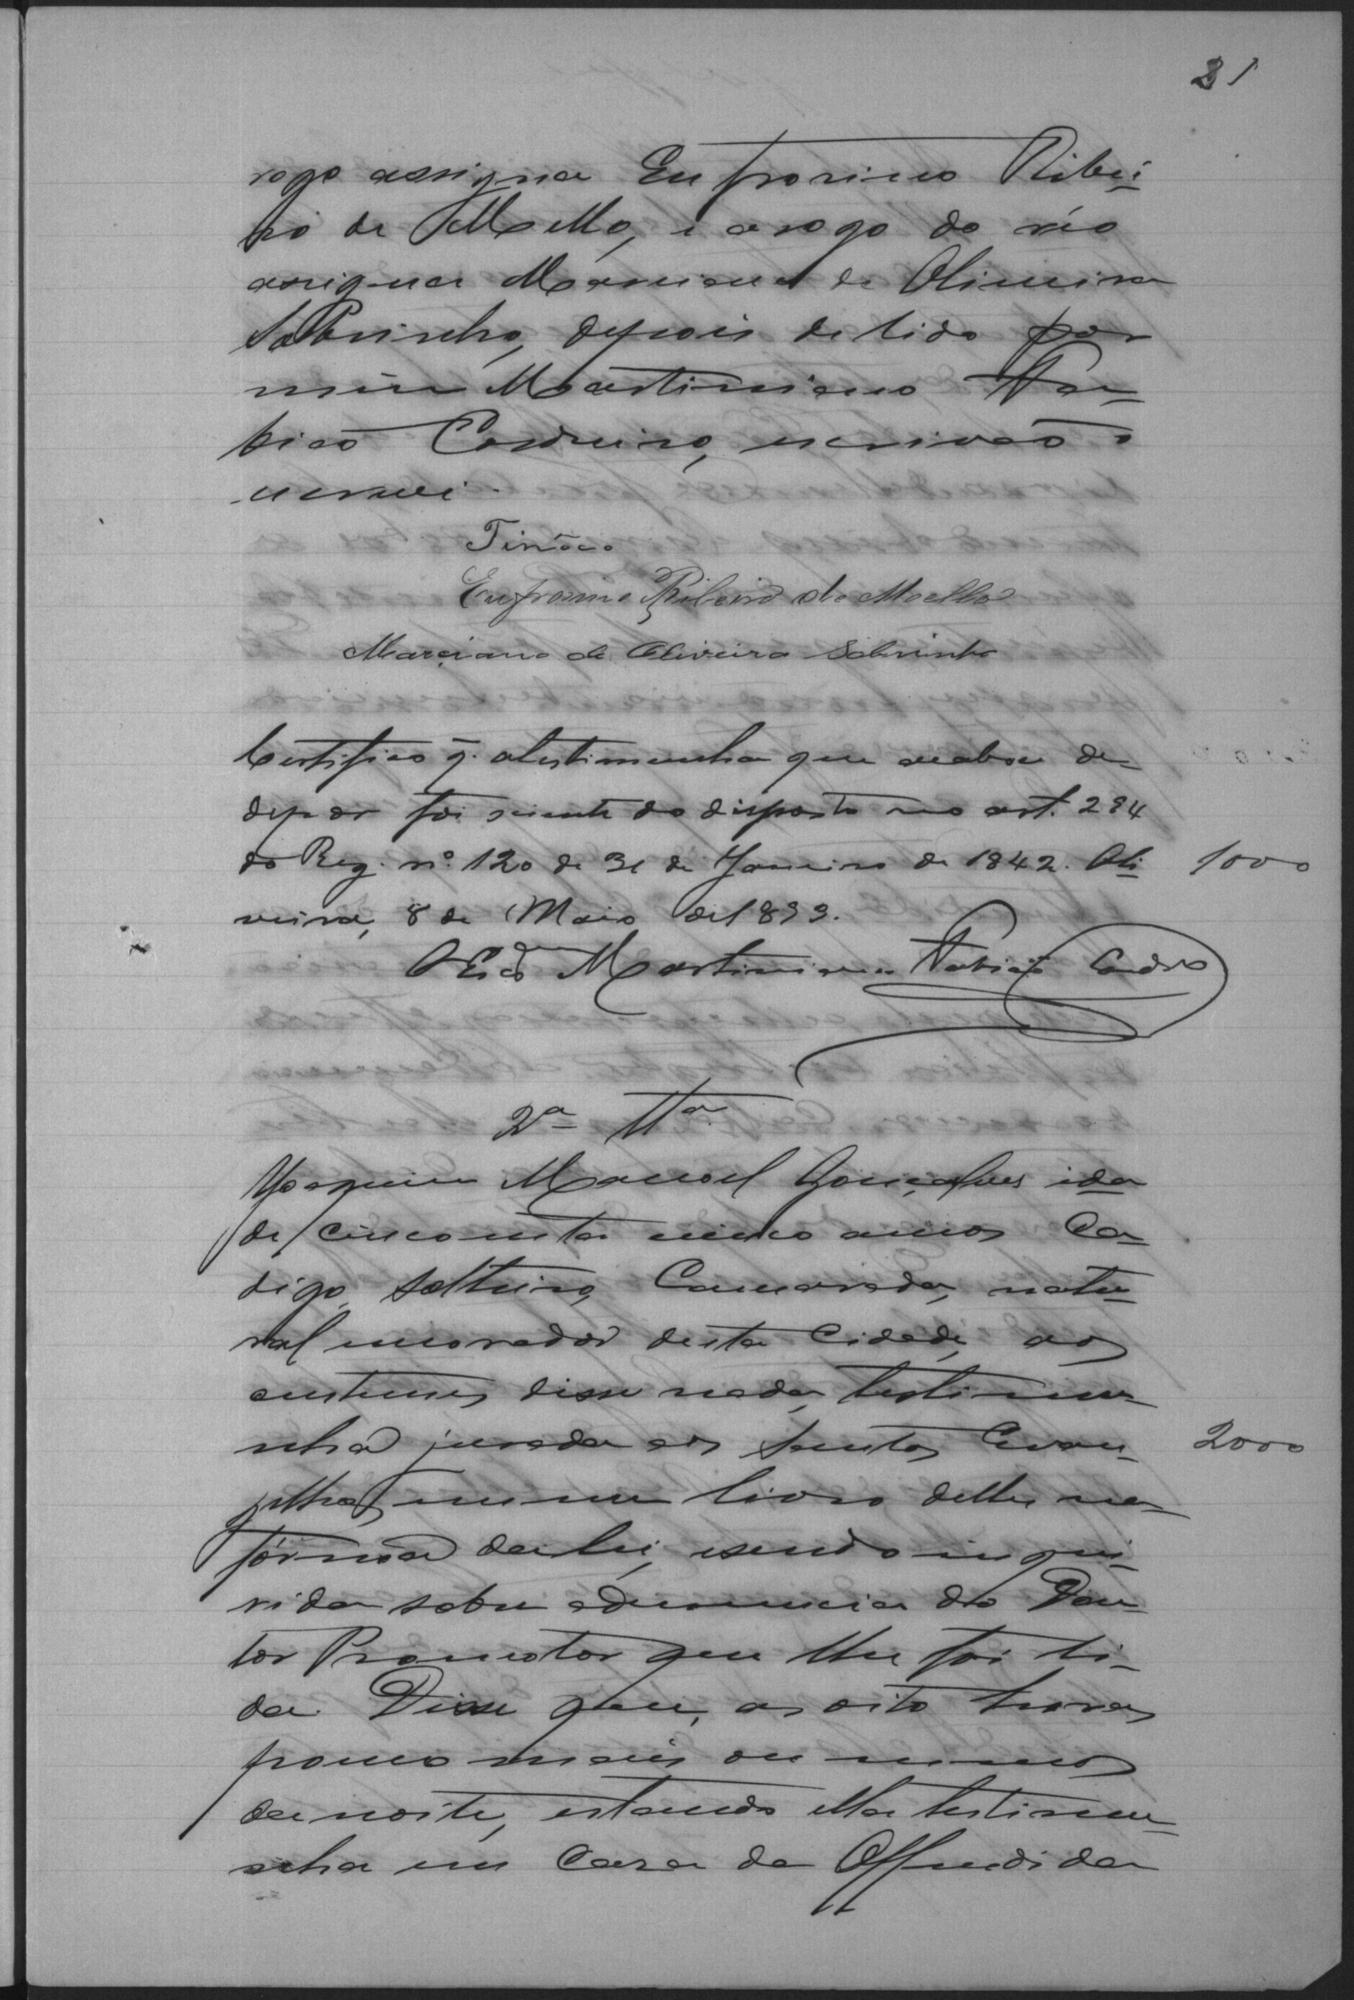 21
rogo assigna Eufrosino Ribei-
ro de Mello, e a rogo do réo
assigna Marciano de Oliveira
Sobrinho, depois de lido por
mim Martiniano Fa-
bião Cordeiro, escrivão o
escrevi.
Tinôco
Eufrosino Ribeiro de Mello
Marciano de Oliveira Sobrinho
Certifico q. a testimunha que acabou de
depor foi sciente do disposto no art. 294
do Reg. nº 120 de 31 de Janeiro de 1842. Oli
veira, 8 de Maio de 1893.
1000
O Escam Martiniano Fabião Cordro
2a Tta
Joaquim Manoel Gonçalves ida
de cincoenta cinco annos
solteiro, Camarada, natu-
ral morador desta Cidade, aos
custumes disse nada, testimu-
nha jurada aos Santos Evan-
2000
gelhos em um livro delles na
fórma da lei, e sendo inqui-
rida sobre a denuncia do Dou-
tor Promotor que lhe foi li-
da. Disse que, as oito horas
pouco mais ou menos
da noite, estando ella testimu-
nha em casa da Offendida